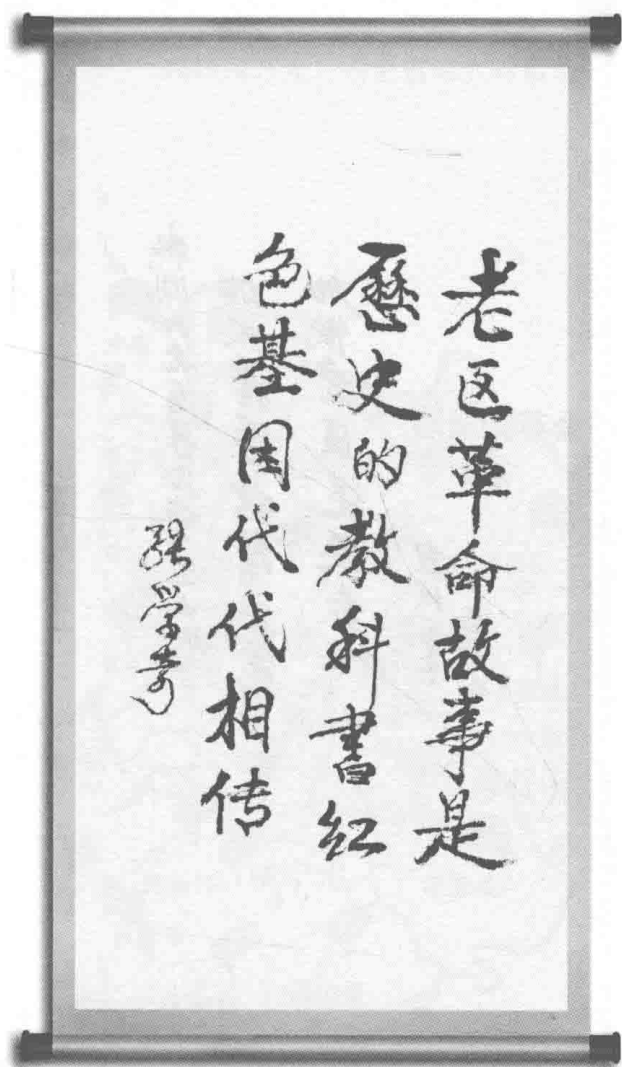 老区革命故事是
歷史的教科書红
色基因代代相传
张学